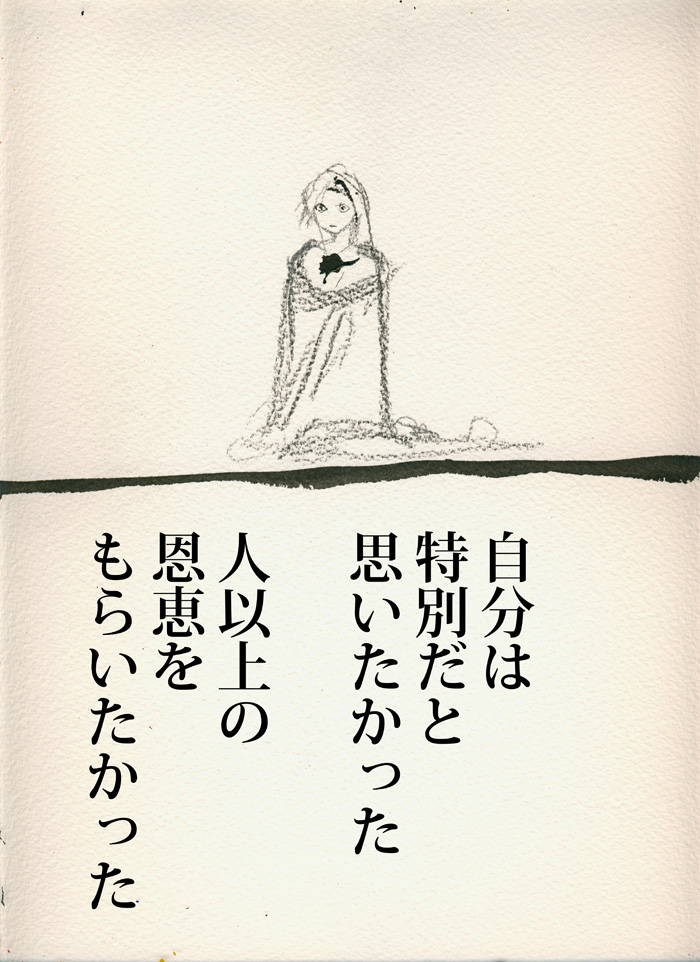 自分は
特別だと
思いたかった
人以上の
恩恵を
もらいたかった